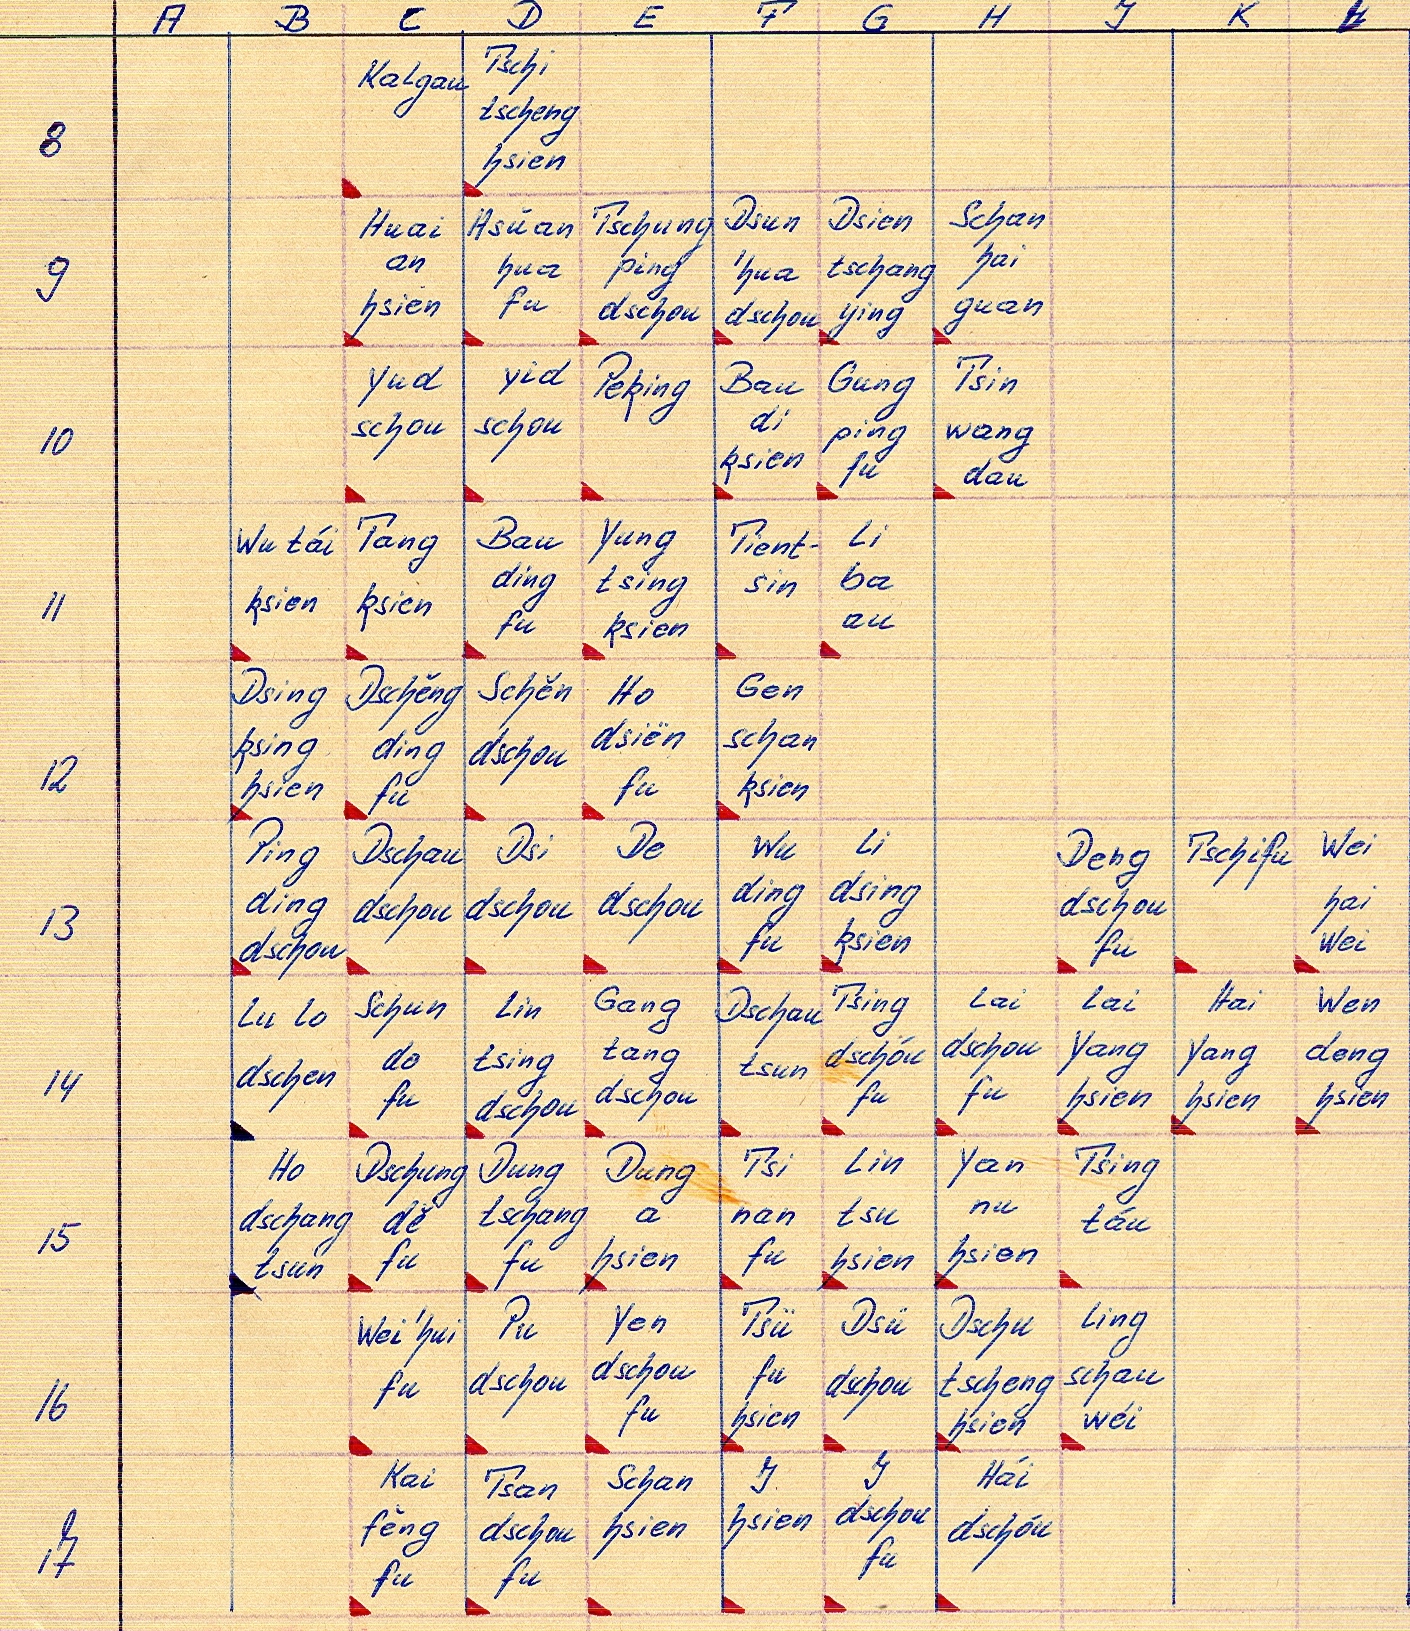 A B C D E F G H J K L
8
Kalgau
Tschi
tscheng
hsien
9
Huai
an
hsien
Hsüan
hua
fu
Tschung
ping
dschou
Dsun
'hua
dschou
Dsien
tschang
ying
Schan
hai
guan
10
Yud
schou
yid
schou
Peking
Bau
di
ksien
Gung
ping
fu
Tsin
wang
dau
11
Wu tái
ksien
Tang
ksien
Bau
ding
fu
Yung
tsing
ksien
Tient-
sin
Li
ba
au
12
Dsing
ksing
hsien
Dschěng
ding
fu
Schěn
dschou
Ho
dsiën
fu
Gen
schan
ksien
13
Ping
ding
dschou
Dschau
dschou
Dsi
dschou
De
dschou
Wu
ding
fu
Li
dsing
ksien
Deng
dschou
fu
Tschifu
Wei
hai
Wei
14
Lu lo
dschen
Schun
do
fu
Lin
tsing
dschou
Gang
tang
dschou
Dschau
tsun
Tsing
dschóu
fu
Lai
dschou
fu
Lai
Yang
hsien
Hai
Yang
hsien
Wen
deng
hsien
15
Ho
dschang
tsun
Dschung
dě
fu
Dung
tschang
fu
Dung
a
hsien
Tsi
nan
fu
Lin
tsu
hsien
Yan
nu
hsien
Tsing
táu
16
Wei'hui
fu
Pu
dschou
Yen
dschou
fu
Tsü
fu
hsien
Dsü
dschou
Dschu
tscheng
hsien
Ling
schau
wéi
17
Kai
fěng
fu
Tsan
dschou
fu
Schan
hsien
J
hsien
J
dschou
fu
Hái
dschóu